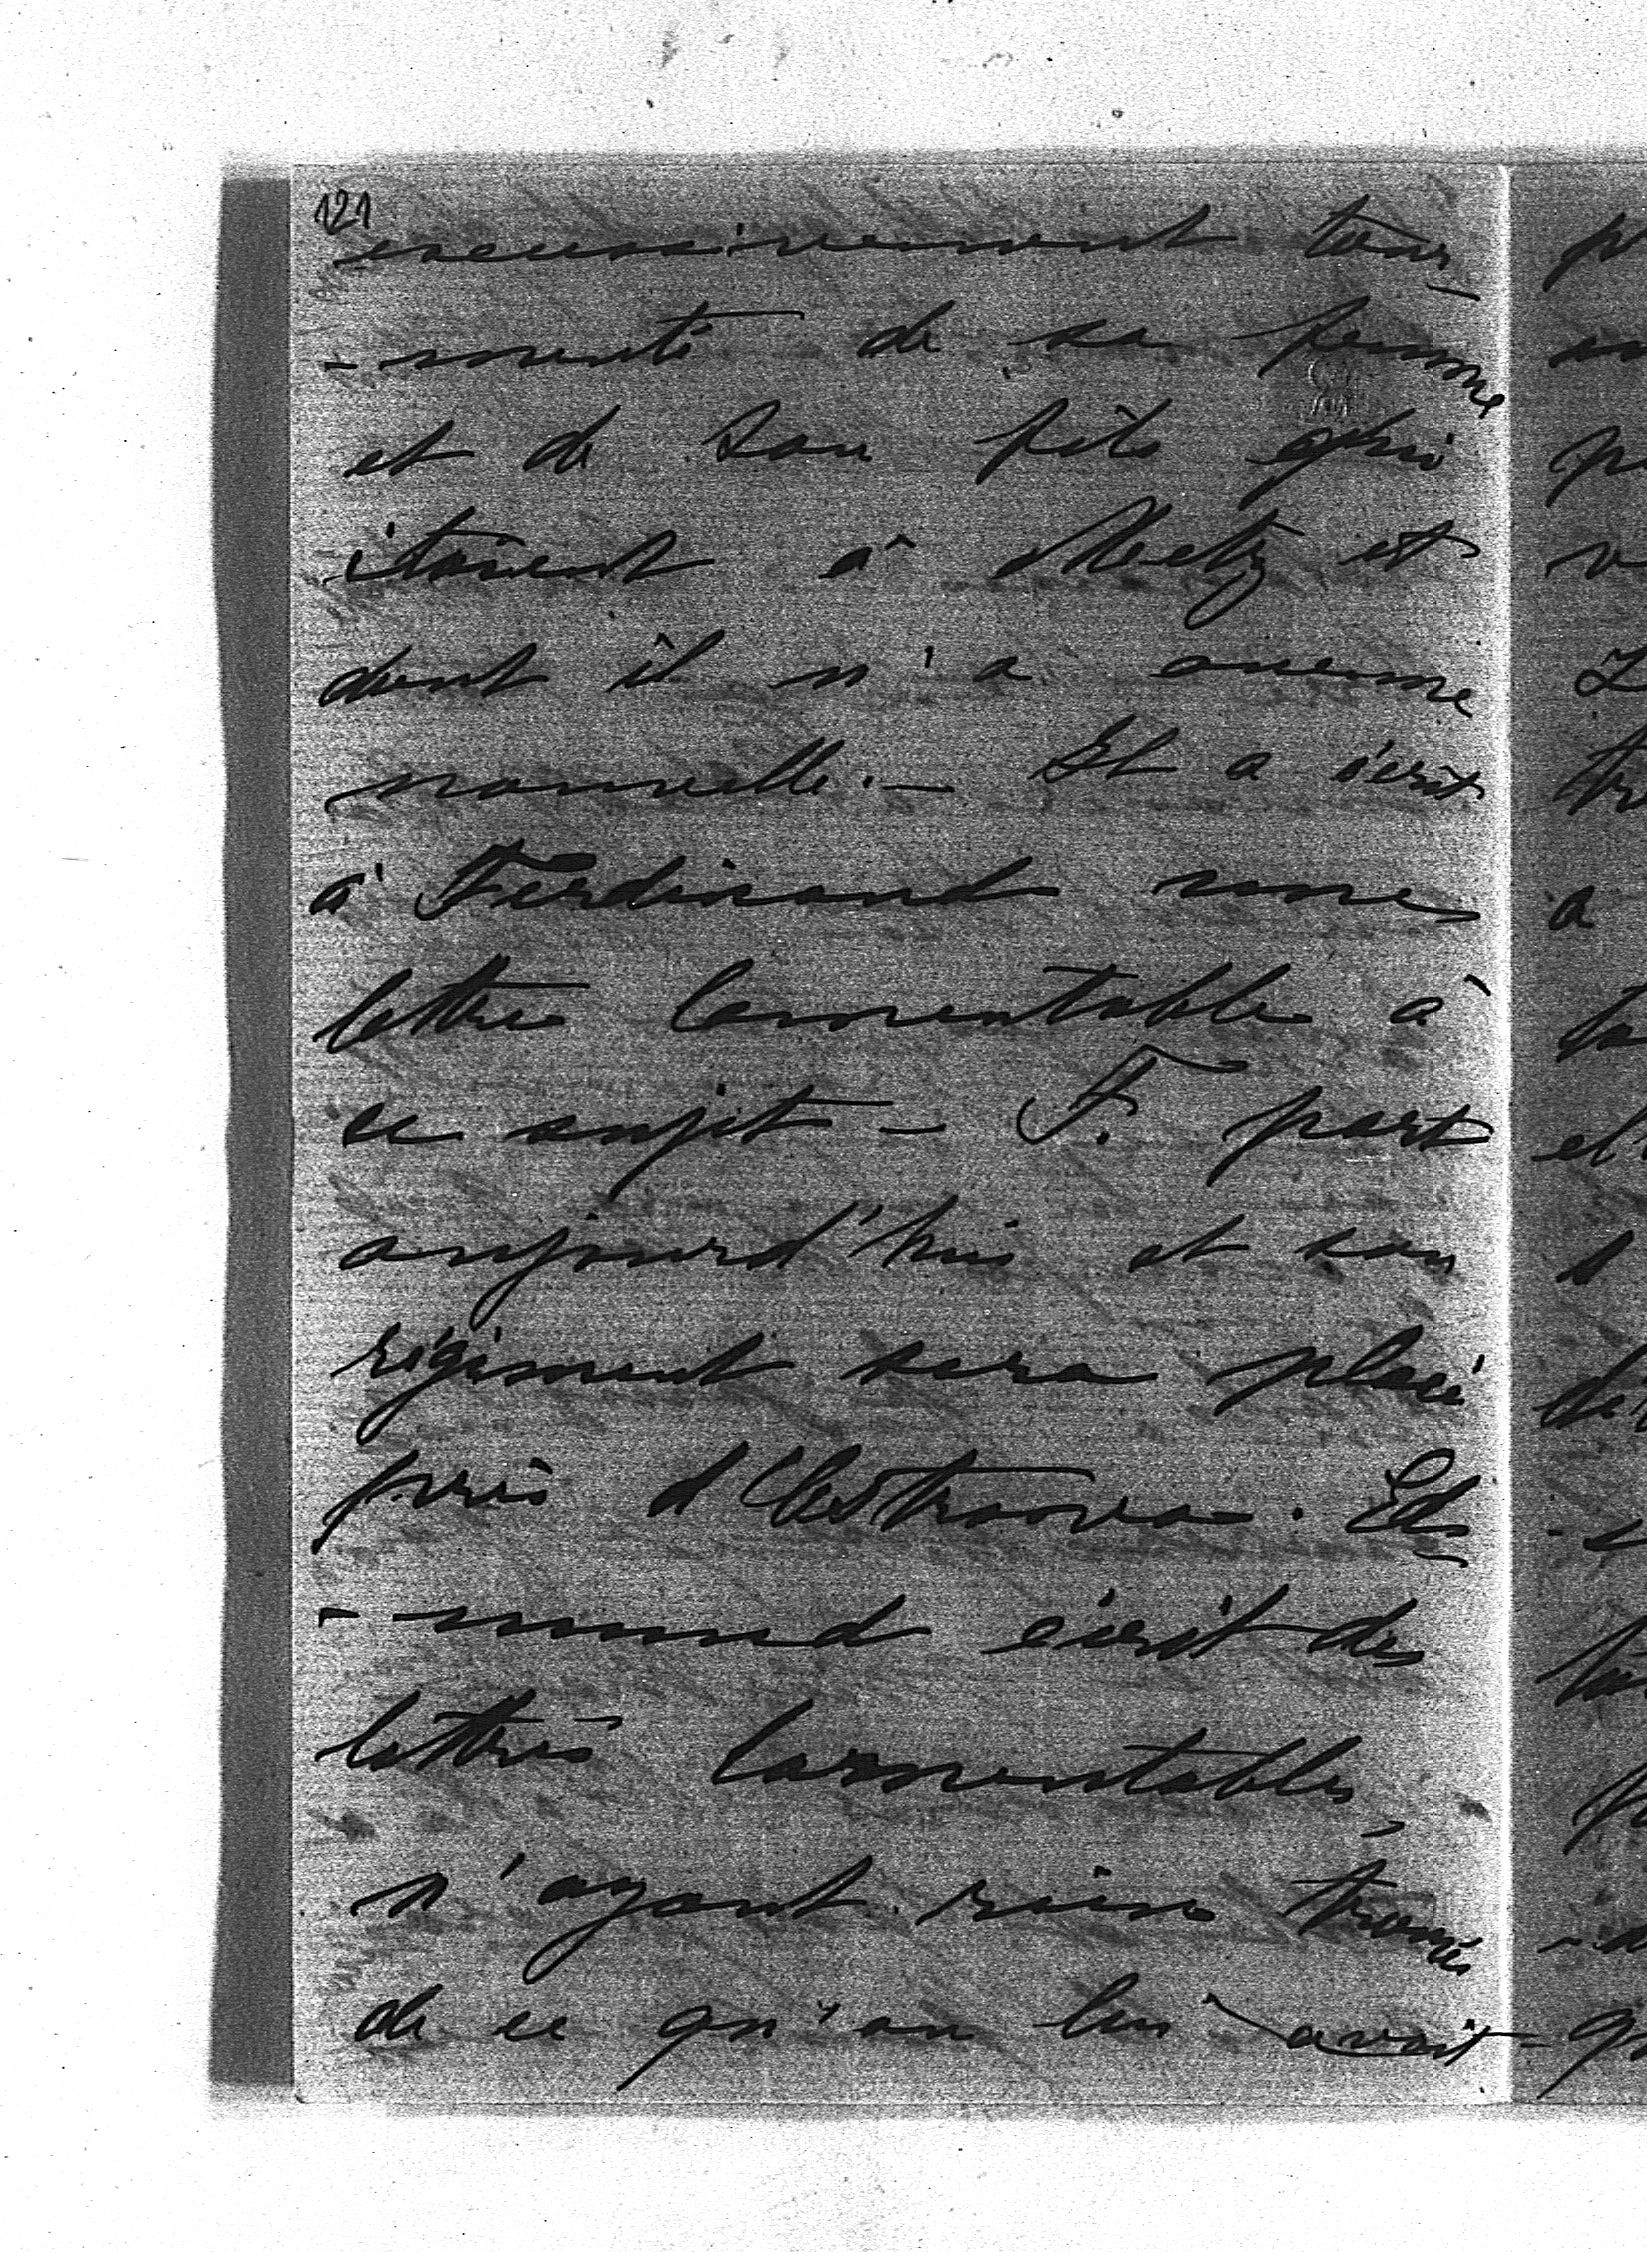 121
excessivement tour-
-menté de sa femme
et de son fils qui
étaient à Metz et
dont il n'a aucune
nouvelle. — Il a écrit
à Ferdinand une
lettre lamentable à
ce sujet — F. part
aujourd'hui et son
régiment sera placé
près d'Ostrowo. Ed-
-mund écrit des
lettres lamentables,
n'ayant rien trouvé
de ce qu'on lui avait